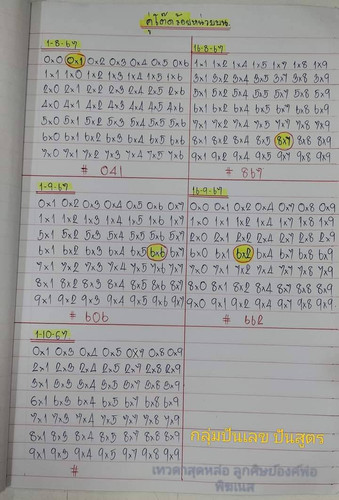 คู่โต๊ดร้อยหน่วยบน
1-8-67
0x0 0x1 0x2 0x3 0x4 0x5 0x6
1x1 1x0 1x2 1x3 1x4 1x5 1x6
2x0 2x1 2x2 2x3 2x4 2x5 2x6
4x0 4x1 4x2 4x3 4x4 4x5 4x6
5x0 5x1 5x2 5x3 5x4 5x5 5x6
6x0 6x1 6x2 6x3 6x4 6x5 6x6
7x0 7x1 7x2 7x3 7x4 7x5 7x6
# 041
16-8-67
1x1 1x2 1x4 1x5 1x7 1x8 1x9
3x1 3x2 3x4 3x5 3x7 3x8 3x9
5x1 5x2 5x4 5x5 5x7 5x8 5x9
6x1 6x2 6x4 6x5 6x7 6x8 6x9
7x1 7x2 7x4 7x5 7x7 7x8 7x9
8x1 8x2 8x4 8x5 8x7 8x8 8x9
9x1 9x2 9x4 9x5 9x7 9x8 9x9
# 867
1-9-67
0x1 0x2 0x3 0x4 0x5 0x6 0x7
1x1 1x2 1x3 1x4 1x5 1x6 1x7
5x1 5x2 5x3 5x4 5x5 5x6 5x7
6x1 6x2 6x3 6x4 6x5 6x6 6x7
7x1 7x2 7x3 7x4 7x5 7x6 7x7
8x1 8x2 8x3 8x4 8x5 8x6 8x7
9x1 9x2 9x3 9x4 9x5 9x6 9x7
# 606
16-9-67
0x0 0x1 0x2 0x4 0x7 0x8 0x9
1x0 1x1 1x2 1x4 1x7 1x8 1x9
2x0 2x1 2x2 2x4 2x7 2x8 2x9
6x0 6x1 6x2 6x4 6x7 6x8 6x9
7x0 7x1 7x2 7x4 7x7 7x8 7x9
8x0 8x1 8x2 8x4 8x7 8x8 8x9
9x0 9x1 9x2 9x4 9x7 9x8 9x9
# 662
1-10-67
0x1 0x3 0x4 0x5 0x7 0x8 0x9
2x1 2x3 2x4 2x5 2x7 2x8 2x9
3x1 3x3 3x4 3x5 3x7 3x8 3x9
6x1 6x3 6x4 6x5 6x7 6x8 6x9
7x1 7x3 7x4 7x5 7x7 7x8 7x9
8x1 8x3 8x4 8x5 8x7 8x8 8x9
9x1 9x3 9x4 9x5 9x7 9x8 9x9
#
กลุ่มปันเลข ปันสูตร
เทวดาสุดหล่อ ลูกศิษย์องค์พ่อ
พิฆเนส